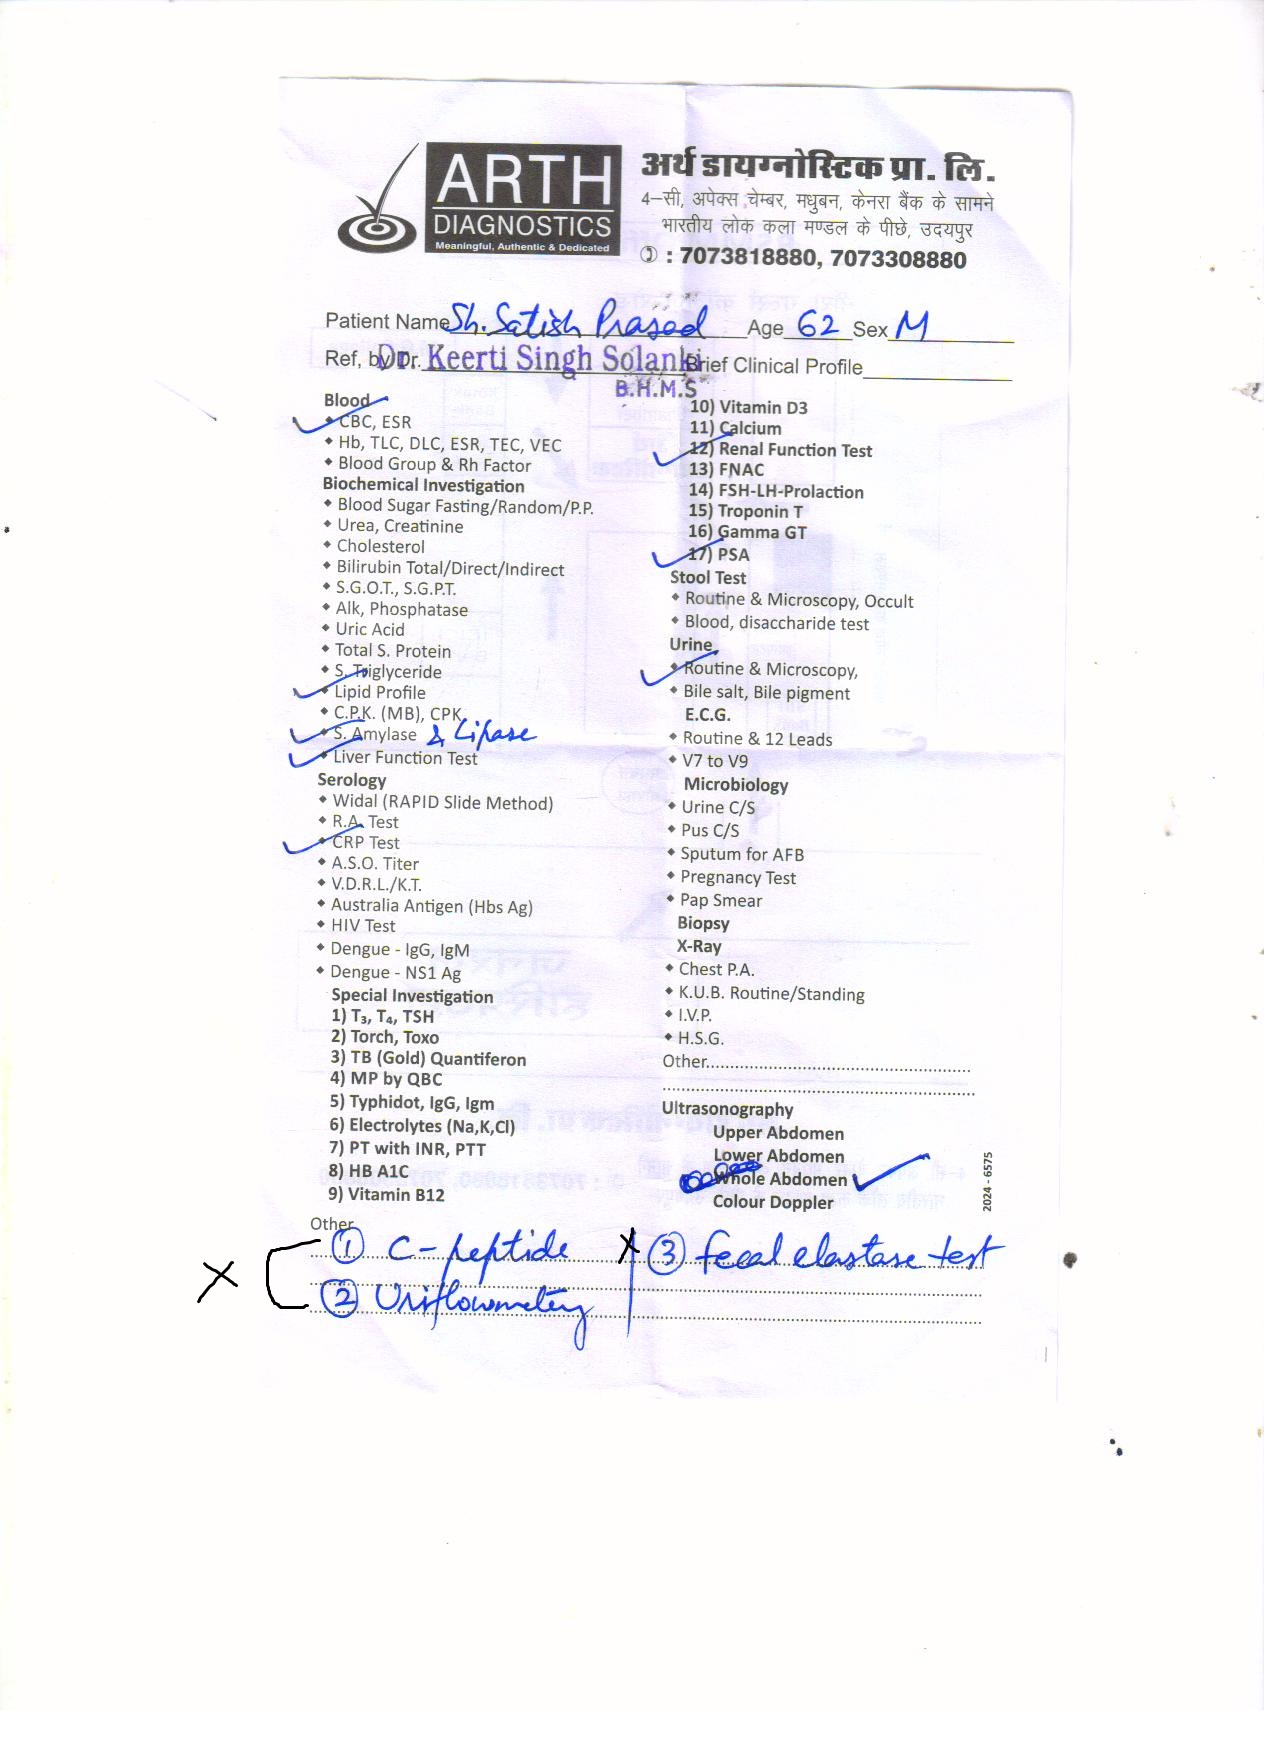 ARTH
DIAGNOSTICS
Meaningful, Authentic & Dedicated
अर्थ डायग्नोस्टिक प्रा. लि.
4–सी, अपेक्स चेम्बर, मधुबन, केनरा बैंक के सामने
भारतीय लोक कला मण्डल के पीछे, उदयपुर
: 7073818880, 7073308880
Patient Name Sh. Satish Prasad Age 62 Sex M
Ref, by Dr. Dr. Keerti Singh Solanki Brief Clinical Profile
B.H.M.S
Blood
CBC, ESR
Hb, TLC, DLC, ESR, TEC, VEC
Blood Group & Rh Factor
Biochemical Investigation
Blood Sugar Fasting/Random/P.P.
Urea, Creatinine
Cholesterol
Bilirubin Total/Direct/Indirect
S.G.O.T., S.G.P.T.
Alk, Phosphatase
Uric Acid
Total S. Protein
S. Triglyceride
Lipid Profile
C.P.K. (MB), CPK
S. Amylase & Lipase
Liver Function Test
Serology
Widal (RAPID Slide Method)
R.A. Test
CRP Test
A.S.O. Titer
V.D.R.L./K.T.
Australia Antigen (Hbs Ag)
HIV Test
Dengue - IgG, IgM
Dengue - NS1 Ag
Special Investigation
1) T₃, T₄, TSH
2) Torch, Toxo
3) TB (Gold) Quantiferon
4) MP by QBC
5) Typhidot, IgG, Igm
6) Electrolytes (Na,K,Cl)
7) PT with INR, PTT
8) HB A1C
9) Vitamin B12
10) Vitamin D3
11) Calcium
12) Renal Function Test
13) FNAC
14) FSH-LH-Prolaction
15) Troponin T
16) Gamma GT
17) PSA
Stool Test
Routine & Microscopy, Occult
Blood, disaccharide test
Urine
Routine & Microscopy,
Bile salt, Bile pigment
E.C.G.
Routine & 12 Leads
V7 to V9
Microbiology
Urine C/S
Pus C/S
Sputum for AFB
Pregnancy Test
Pap Smear
Biopsy
X-Ray
Chest P.A.
K.U.B. Routine/Standing
I.V.P.
H.S.G.
Other
Ultrasonography
Upper Abdomen
Lower Abdomen
Whole Abdomen
Colour Doppler
2024 - 6575
Other
① C-peptide ③ fecal elastase test
② Uriflowmetery